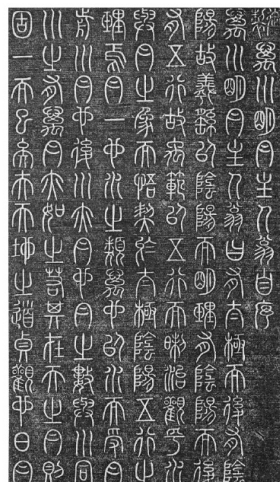 萬川明月主人翁自序
萬川明月主人翁曰有太極而後有陰
陽故羲繇以陰陽而明理有陰陽而後
有五行故禹範以五行而晣治觀乎水
與月之象而悟契於太極陰陽五行之
理焉月一也水之類萬也以水而受月
前川月也後川亦月也月之數與川同
川之有萬月亦如之若其在天之月則
固一而已矣夫天地之道貞觀也日月